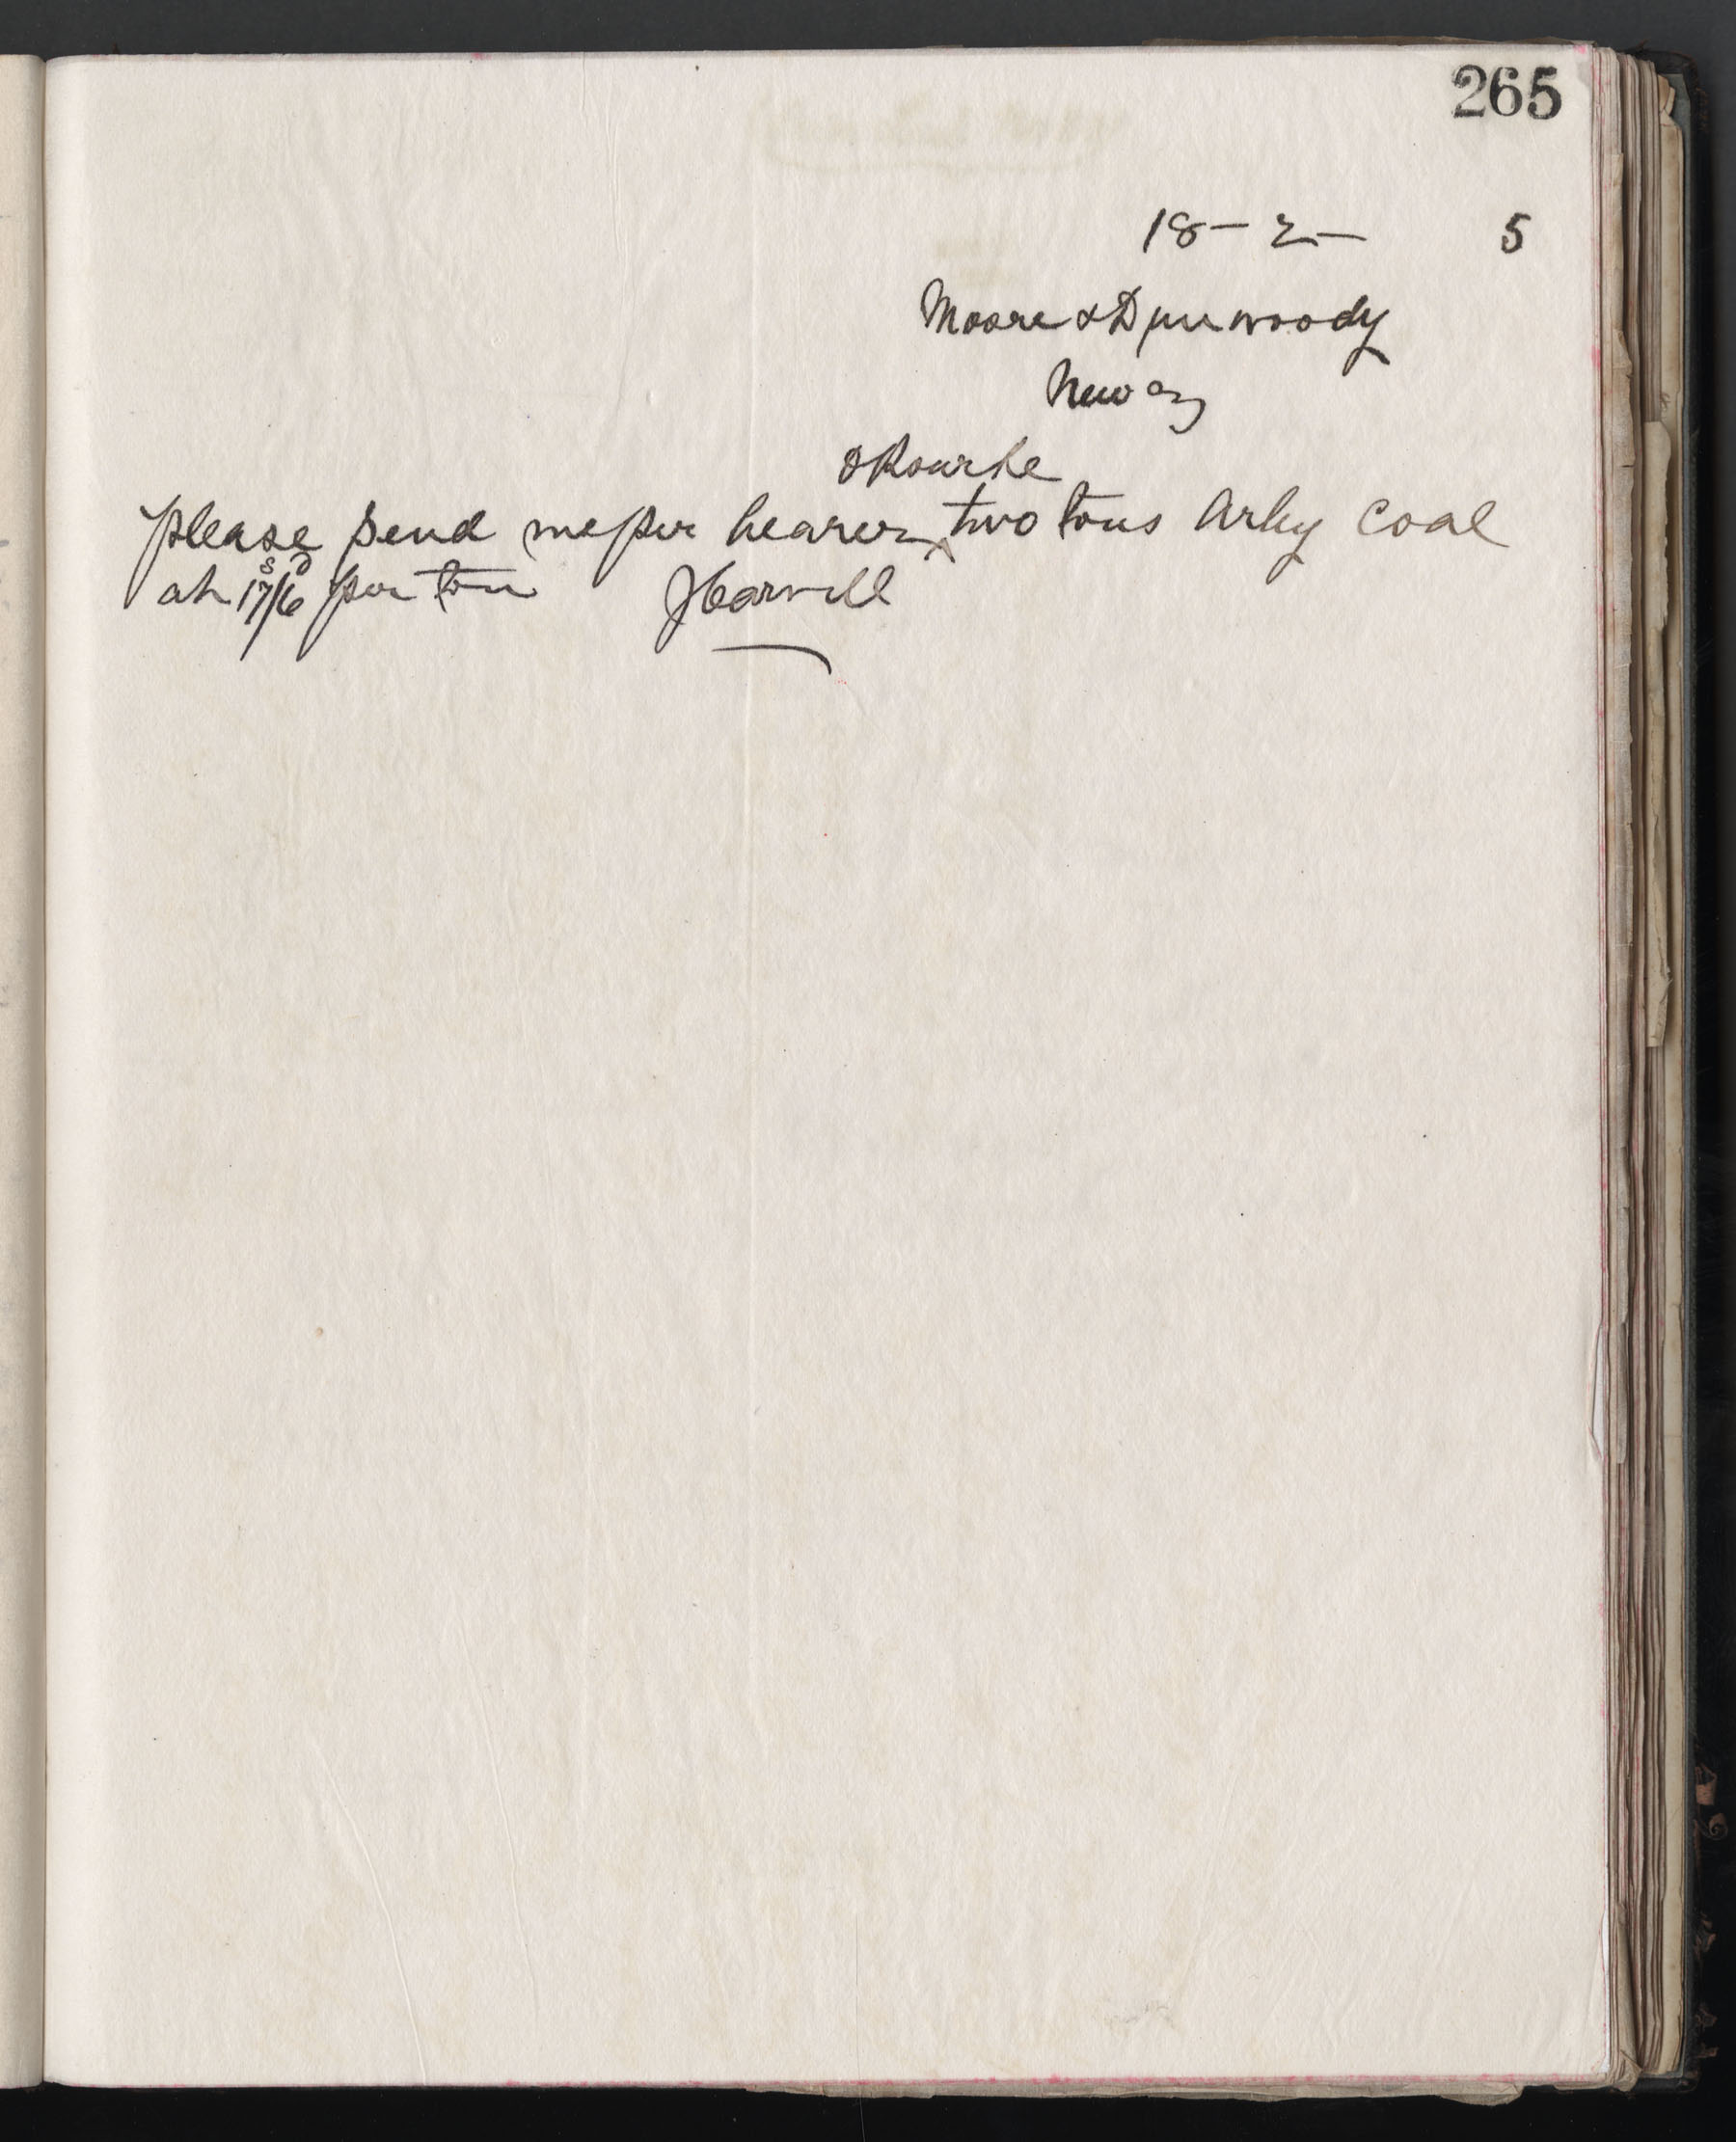 265
18 - 2 - 5
Moore & Dunwoody
Newry
O Rourke
please send me per bearer ^ two tons Arley Coal
at 17s/6d per ton J Carvill